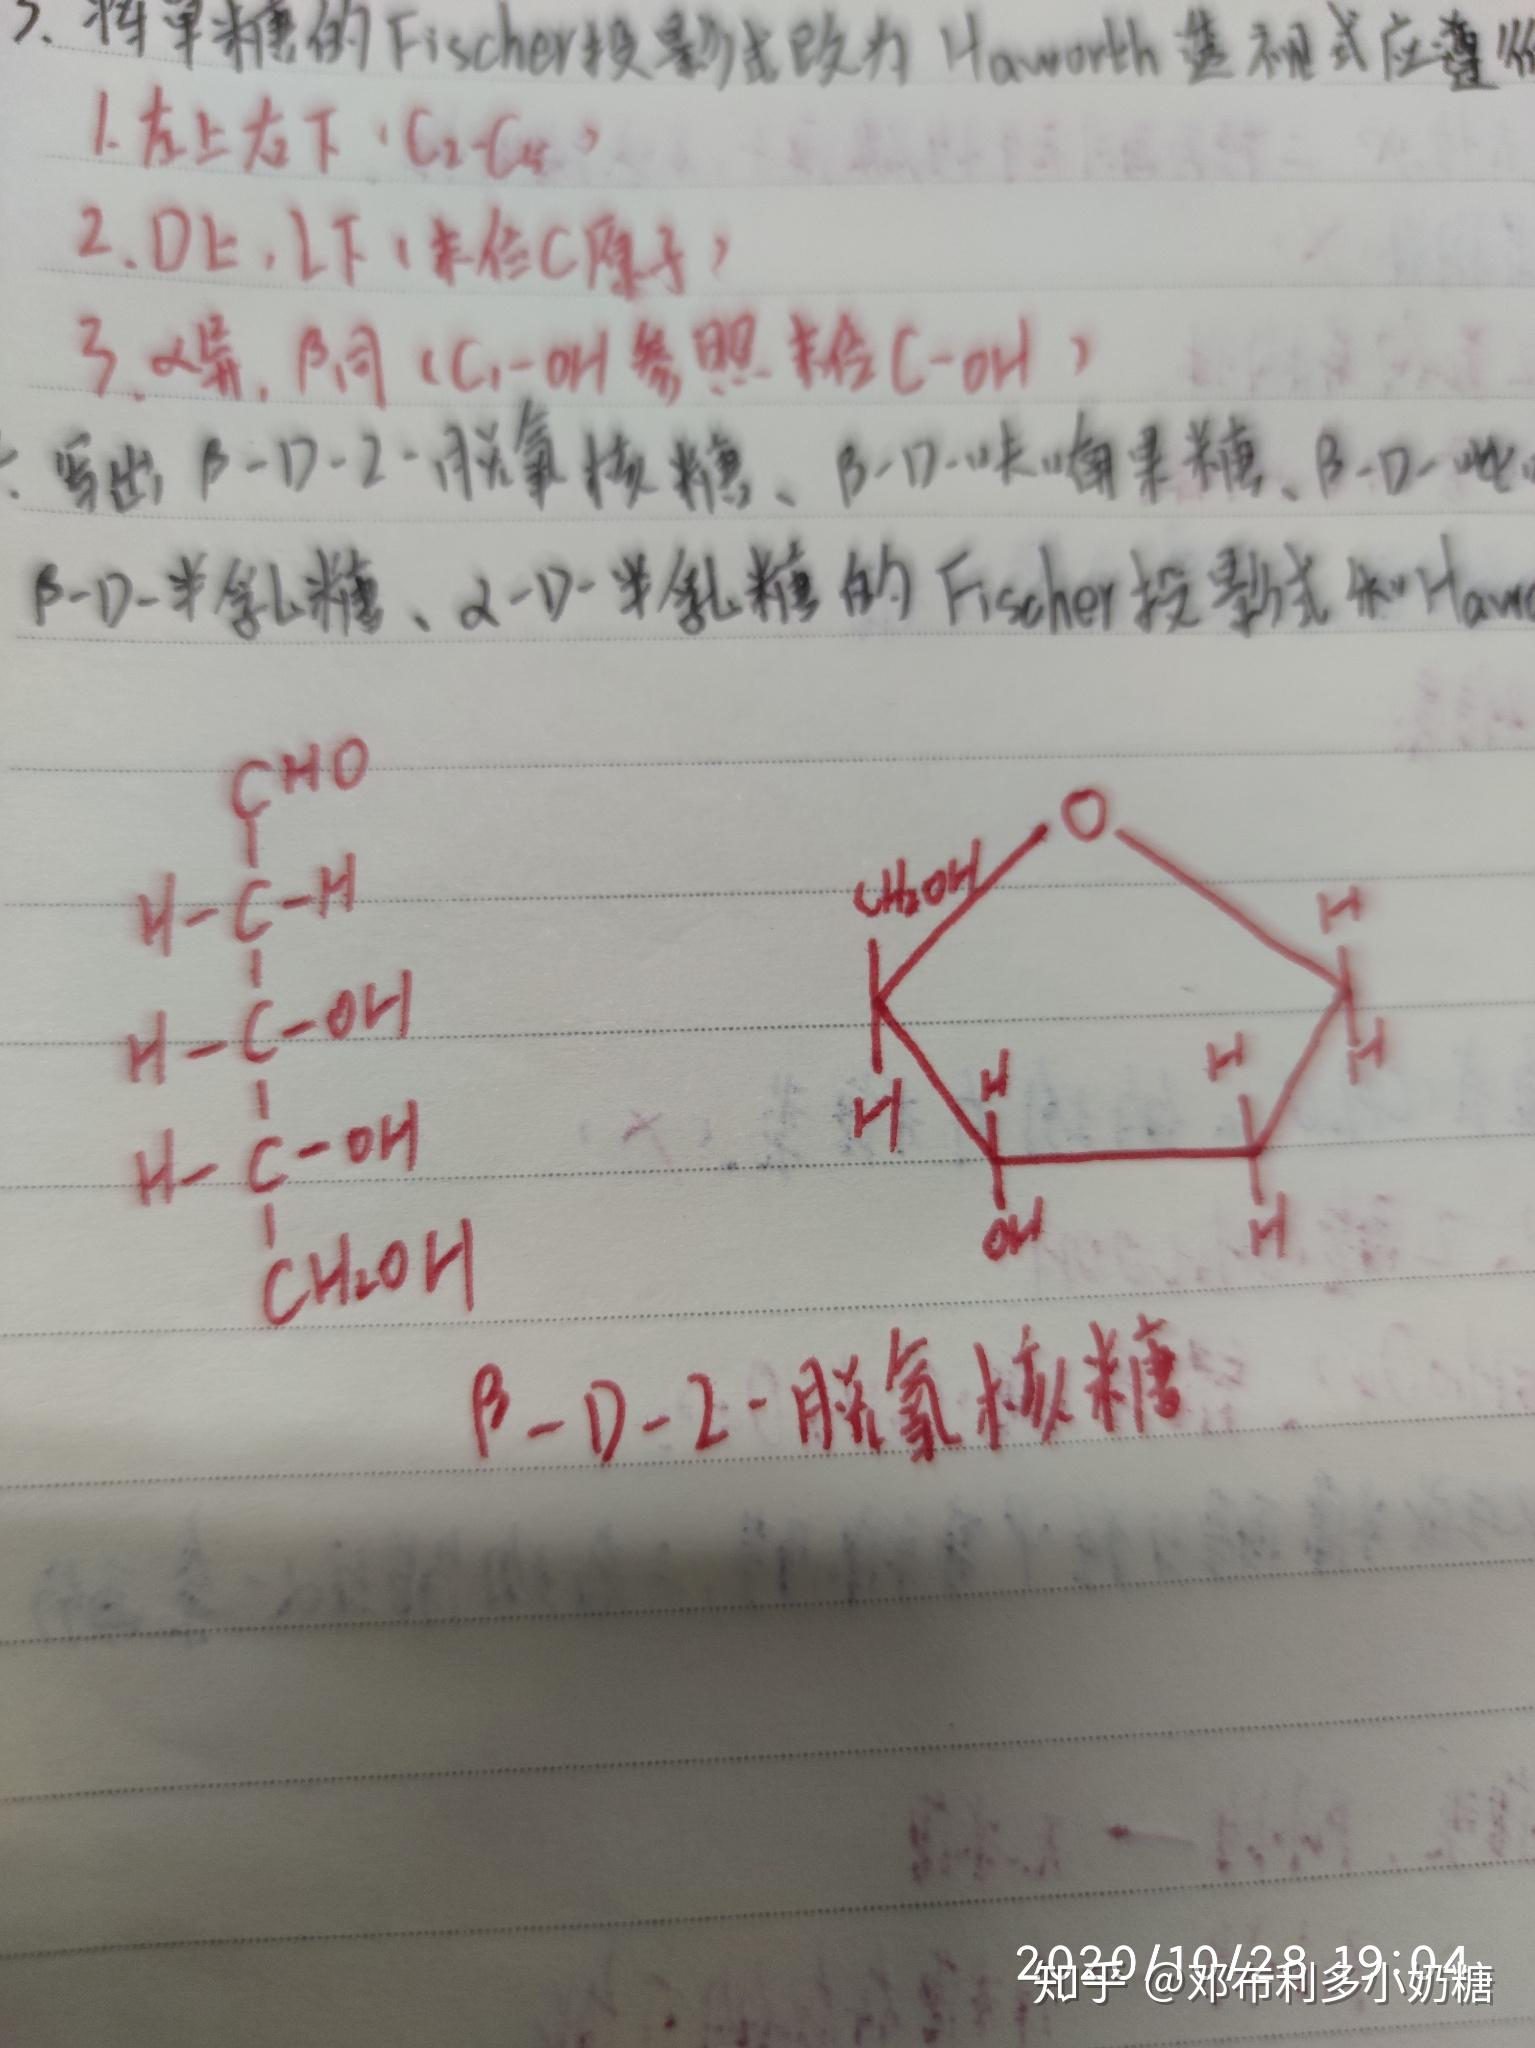 将单糖的Fischer投影式改为Haworth透视式应遵
1.左上右下(C2-C4)
2.D上,L下(末位C原子)
3.α异,β同(C1-OH参照末位C-OH)
写出β-D-2-脱氧核糖、β-D-呋喃果糖、β-D-吡
β-D-半乳糖、α-D-半乳糖的Fischer投影式和Hawo
CHO
H-C-H
H-C-OH
H-C-OH
CH2OH
O
CH2OH
H
H
H
H
H
OH
H
β-D-2-脱氧核糖
2020/10/28 19:04
知乎 @邓布利多小奶糖